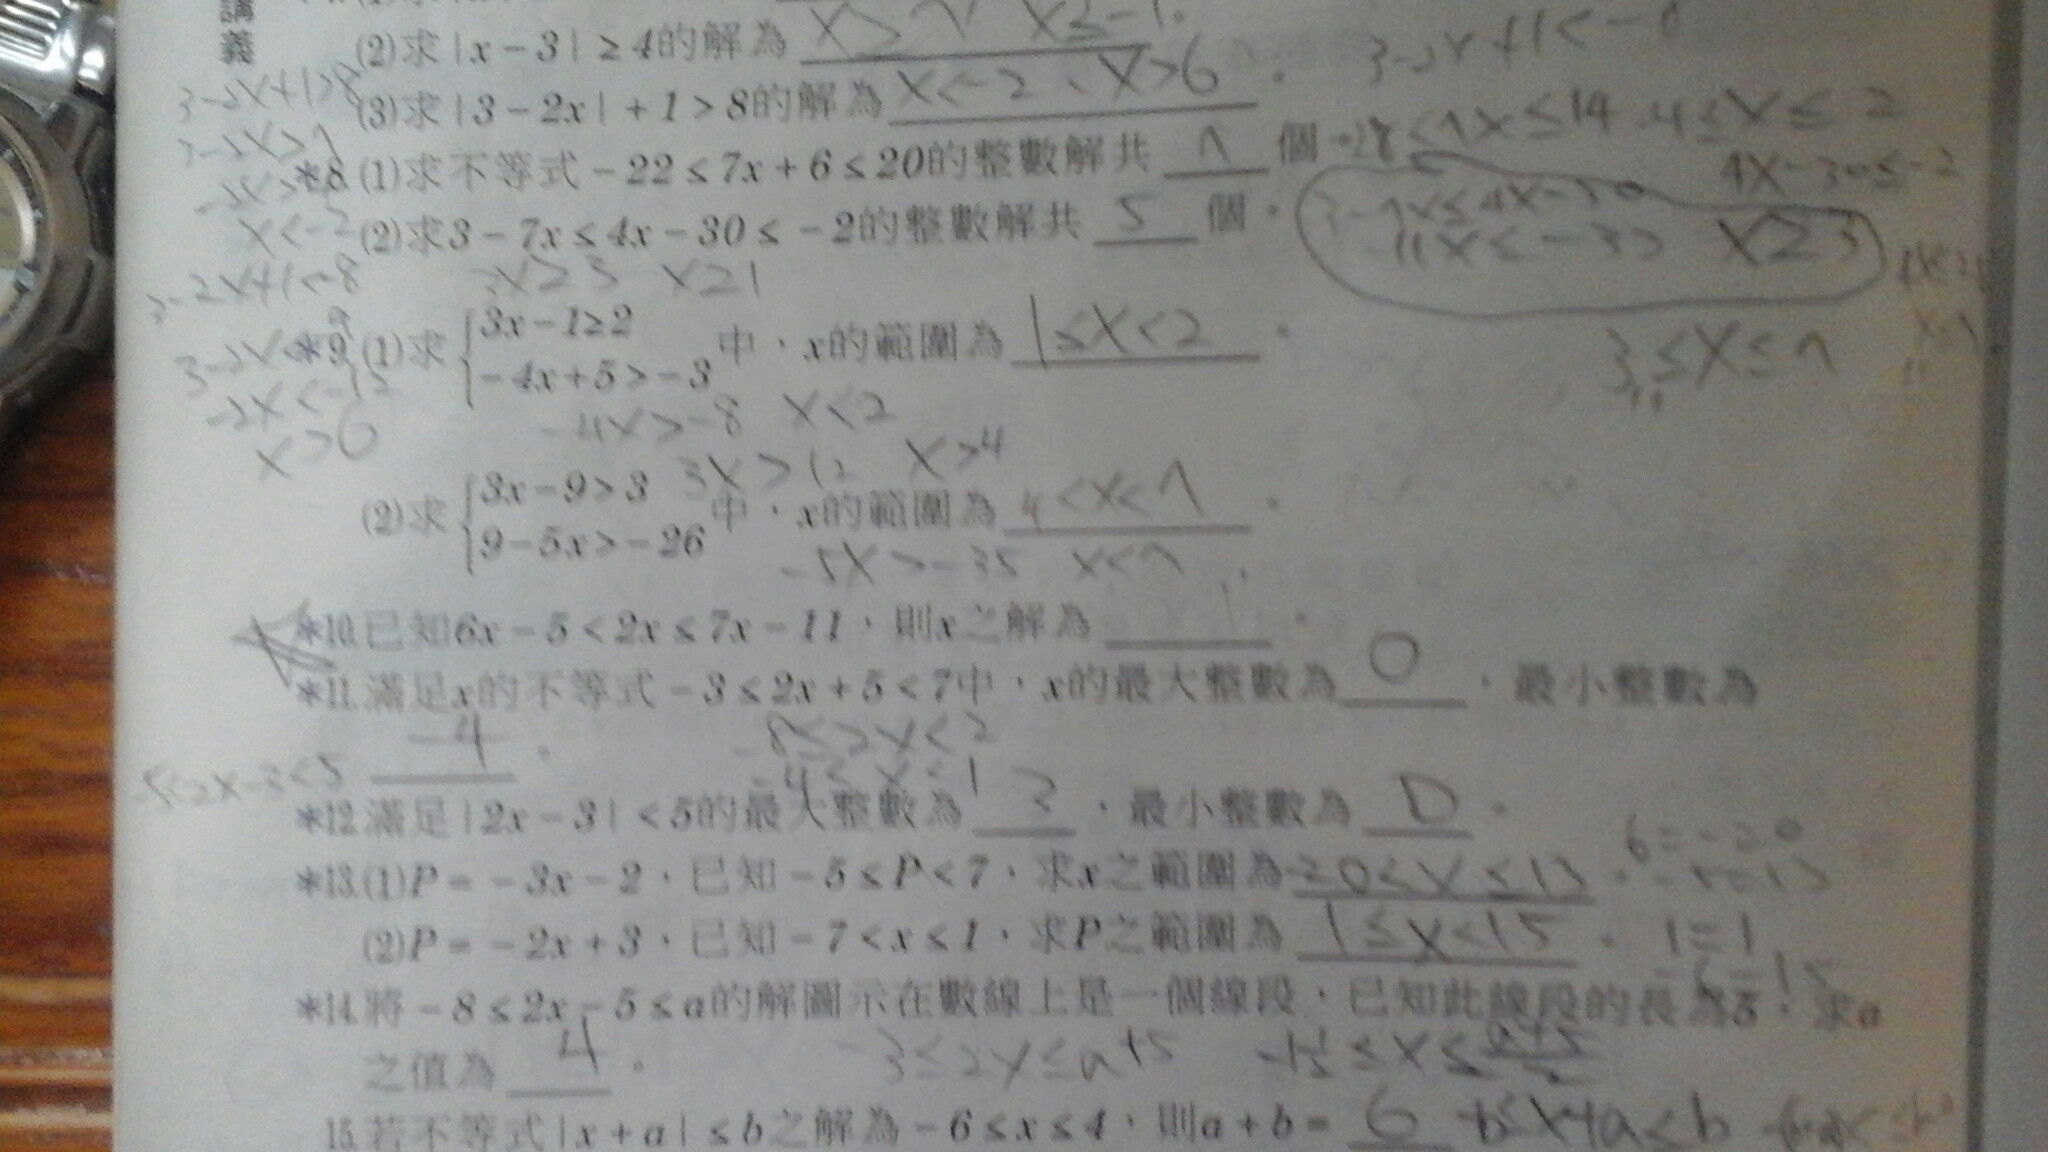 講義
(2)求|x-3|≥4的解為 x≥7, x≤-1.
3-2x+1>8
(3)求|3-2x|+1>8的解為 x<-2、x>6.
3-2x>7
*8.(1)求不等式-22≤7x+6≤20的整數解共 7 個.
-28≤7x≤14 -4≤x≤2
4x-30≤-2
x<-2
(2)求3-7x≤4x-30≤-2的整數解共 5 個.
3-7x≤4x-30
-11x≤-33 x≥3
3≤x≤7
3-2x+1<-8
3x≥3 x≥1
*9.(1)求{3x-1≥2
-4x+5>-3 中,x的範圍為 1≤x<2.
x>6
-4x>-8 x<2
3x>12 x>4
(2)求{3x-9>3
9-5x>-26 中,x的範圍為 4<x<7.
-5x>-35 x<7
*10.已知6x-5<2x≤7x-11,則x之解為.
*11.滿足x的不等式-3≤2x+5<7中,x的最大整數為 0,最小整數為
-4.
-8≤2x<2
-4≤x<1
-5<2x-3<5
*12.滿足|2x-3|<5的最大整數為 3,最小整數為 0.
*13.(1)P=-3x-2,已知-5≤P<7,求x之範圍為 -20<x≤13.
(2)P=-2x+3,已知-7<x≤1,求P之範圍為 1≤x<15. 1=1
*14.將-8≤2x-5≤a的解圖示在數線上是一個線段,已知此線段的長為5,求a
之值為 4.
-3≤2x≤a+5
15.若不等式|x+a|≤b之解為-6≤x≤4,則a+b= 6
-b≤x+a≤b